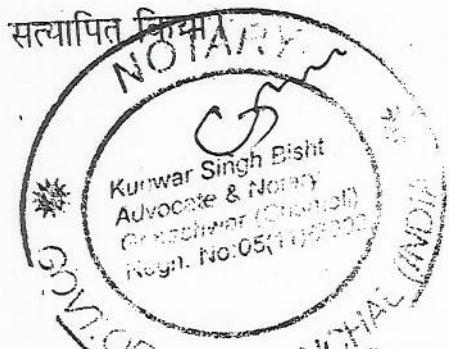 सत्यापित किया।
NOTARY
Kunwar Singh Bisht
Advocate & Notary
(Chamoli)
Regn. No:05(11)/
GOVT. OF (INDIA)